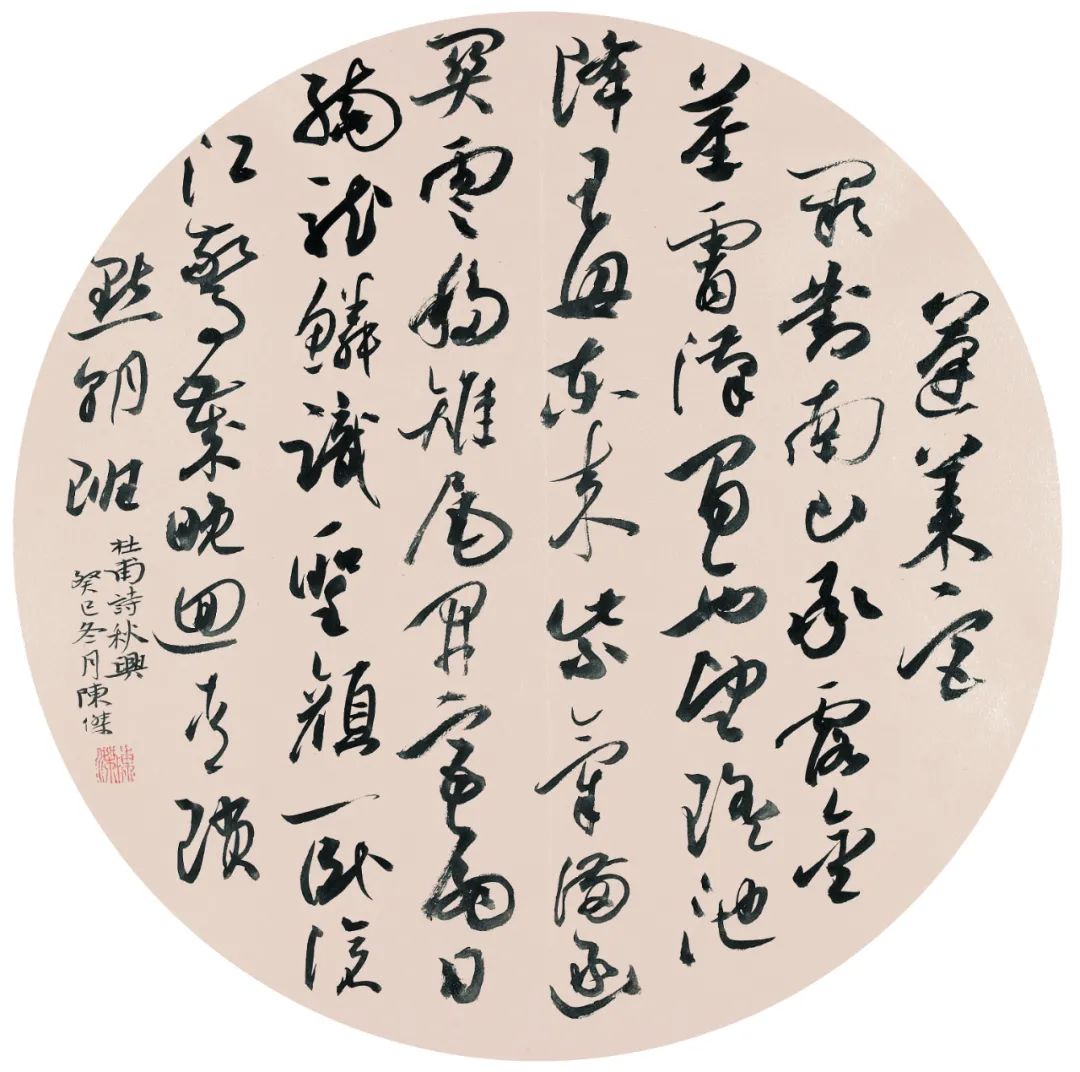 蓬萊宮
闕對南山承露金
莖霄漢間西望瑤池
降王母東來紫氣滿函
關雲移雉尾開宮扇日
繞龍鱗識聖顏一臥滄
江驚歲晚迴青瑣
點朝班
杜甫詩秋興
癸巳冬月陳傑
陳傑